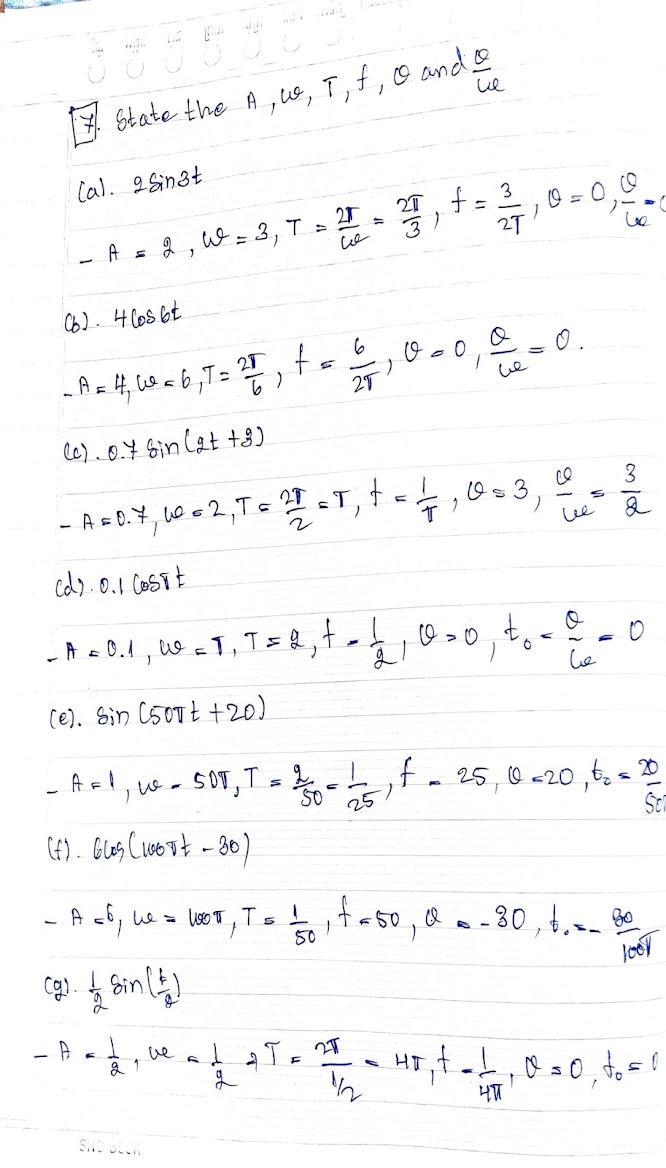 7. State the A, ω, T, f, θ and θ/ω
(a). 2 sin3t
- A = 2, ω = 3, T = 2π/ω = 2π/3, f = 3/2π, θ = 0, θ/ω = 0
(b). 4cos6t
- A = 4, ω = 6, T = 2π/6, f = 6/2π, θ = 0, θ/ω = 0.
(c). 0.7 sin(2t + 3)
- A = 0.7, ω = 2, T = 2π/2 = π, f = 1/π, θ = 3, θ/ω = 3/2
(d). 0.1 cosπt
- A = 0.1, ω = π, T = 2, f = 1/2, θ = 0, t₀ = θ/ω = 0
(e). sin (50πt + 20)
- A = 1, ω = 50π, T = 2/50 = 1/25, f = 25, θ = 20, t₀ = 20/50π
(f). 6cos(100πt - 30)
- A = 6, ω = 100π, T = 1/50, f = 50, θ = -30, t₀ = - 30/100π
(g). 1/2 sin(t/2)
- A = 1/2, ω = 1/2, T = 2π/1/2 = 4π, f = 1/4π, θ = 0, t₀ = 0